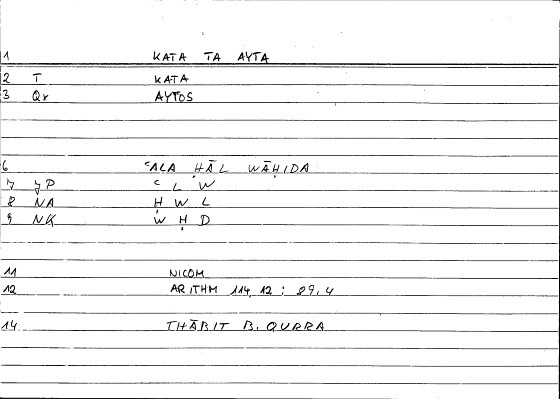 1 KATA TA AYTA
2 T KATA
3 Qr AYTOS
6 ʿALA ḤĀL WĀḤIDA
7 JP ʿ L W
8 NA Ḥ W L
9 NK W Ḥ D
11 NICOM
12 ARITHM 114,12 : 29,4
14 THĀBIT B. QURRA